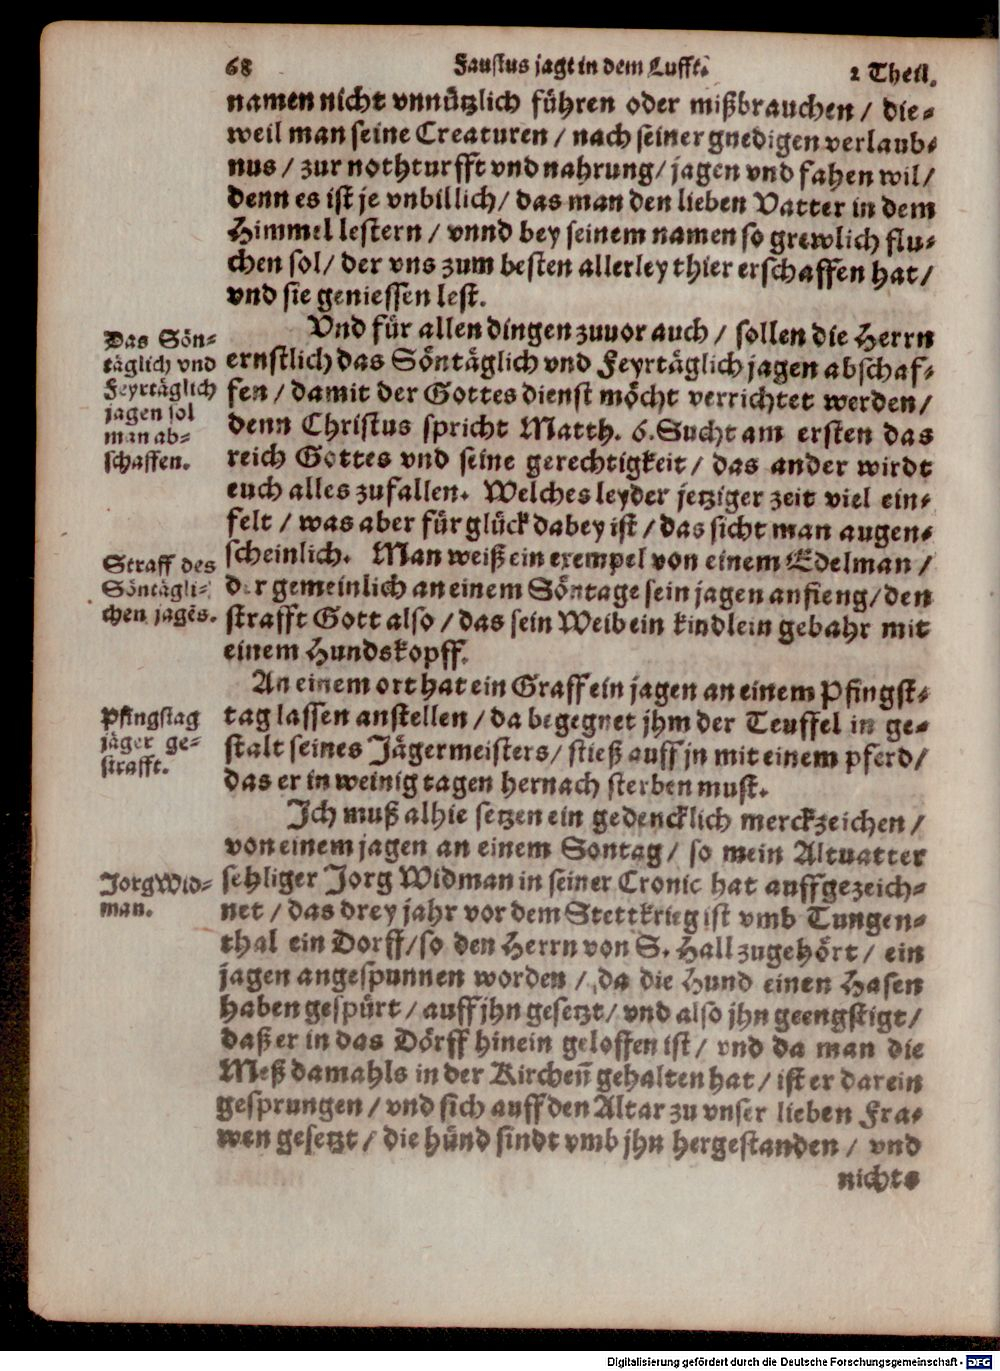 68 Faustus jagt in dem Lufft. 2 Theil.
namen nicht vnnützlich führen oder mißbrauchen / die-
weil man seine Creaturen / nach seiner gnedigen verlaub-
nus / zur nothturfft vnd nahrung / jagen vnd fahen wil /
denn es ist je vnbillich / das man den lieben Vatter in dem
Himmel lestern / vnnd bey seinem namen so grewlich flu-
chen sol / der vns zum besten allerley thier erschaffen hat /
vnd sie geniessen lest.
Das Sön-
täglich vnd
Feyrtäglich
jagen sol
man ab-
schaffen.
Vnd für allen dingen zuuor auch / sollen die Herrn
ernstlich das Söntäglich vnd Feyrtäglich jagen abschaf-
fen / damit der Gottes dienst möcht verrichtet werden /
denn Christus spricht Matth. 6. Sucht am ersten das
reich Gottes vnd seine gerechtigkeit / das ander wirdt
euch alles zufallen. Welches leyder jetziger zeit viel ein-
felt / was aber für glück dabey ist / das sicht man augen-
scheinlich. Man weiß ein exempel von einem Edelman /
Straff des
Söntägli-
chen jagēs.
der gemeinlich an einem Söntage sein jagen anfieng / den
strafft Gott also / das sein Weib ein kindlein gebahr mit
einem Hundskopff.
An einem ort hat ein Graff ein jagen an einem Pfingst-
Pfingstag
jäger ge-
strafft.
tag lassen anstellen / da begegnet jhm der Teuffel in ge-
stalt seines Jägermeisters / stieß auff jn mit einem pferd /
das er in weinig tagen hernach sterben must.
Ich muß alhie setzen ein gedencklich merckzeichen /
von einem jagen an einem Sontag / so mein Altuatter
Jorg Wid-
man.
sehliger Jorg Widman in seiner Cronic hat auffgezeich-
net / das drey jahr vor dem Stettkrieg ist vmb Tungen-
thal ein Dorff / so den Herrn von S. Hall zugehört / ein
jagen angespunnen worden / da die Hund einen Hasen
haben gespürt / auff jhn gesetzt / vnd also jhn geengstigt /
daß er in das Dörff hinein geloffen ist / vnd da man die
Meß damahls in der Kirchen̄ gehalten hat / ist er darein
gesprungen / vnd sich auff den Altar zu vnser lieben Fra-
wen gesetzt / die hünd sindt vmb jhn hergestanden / vnd
nichts
Digitalisierung gefördert durch die Deutsche Forschungsgemeinschaft - DFG